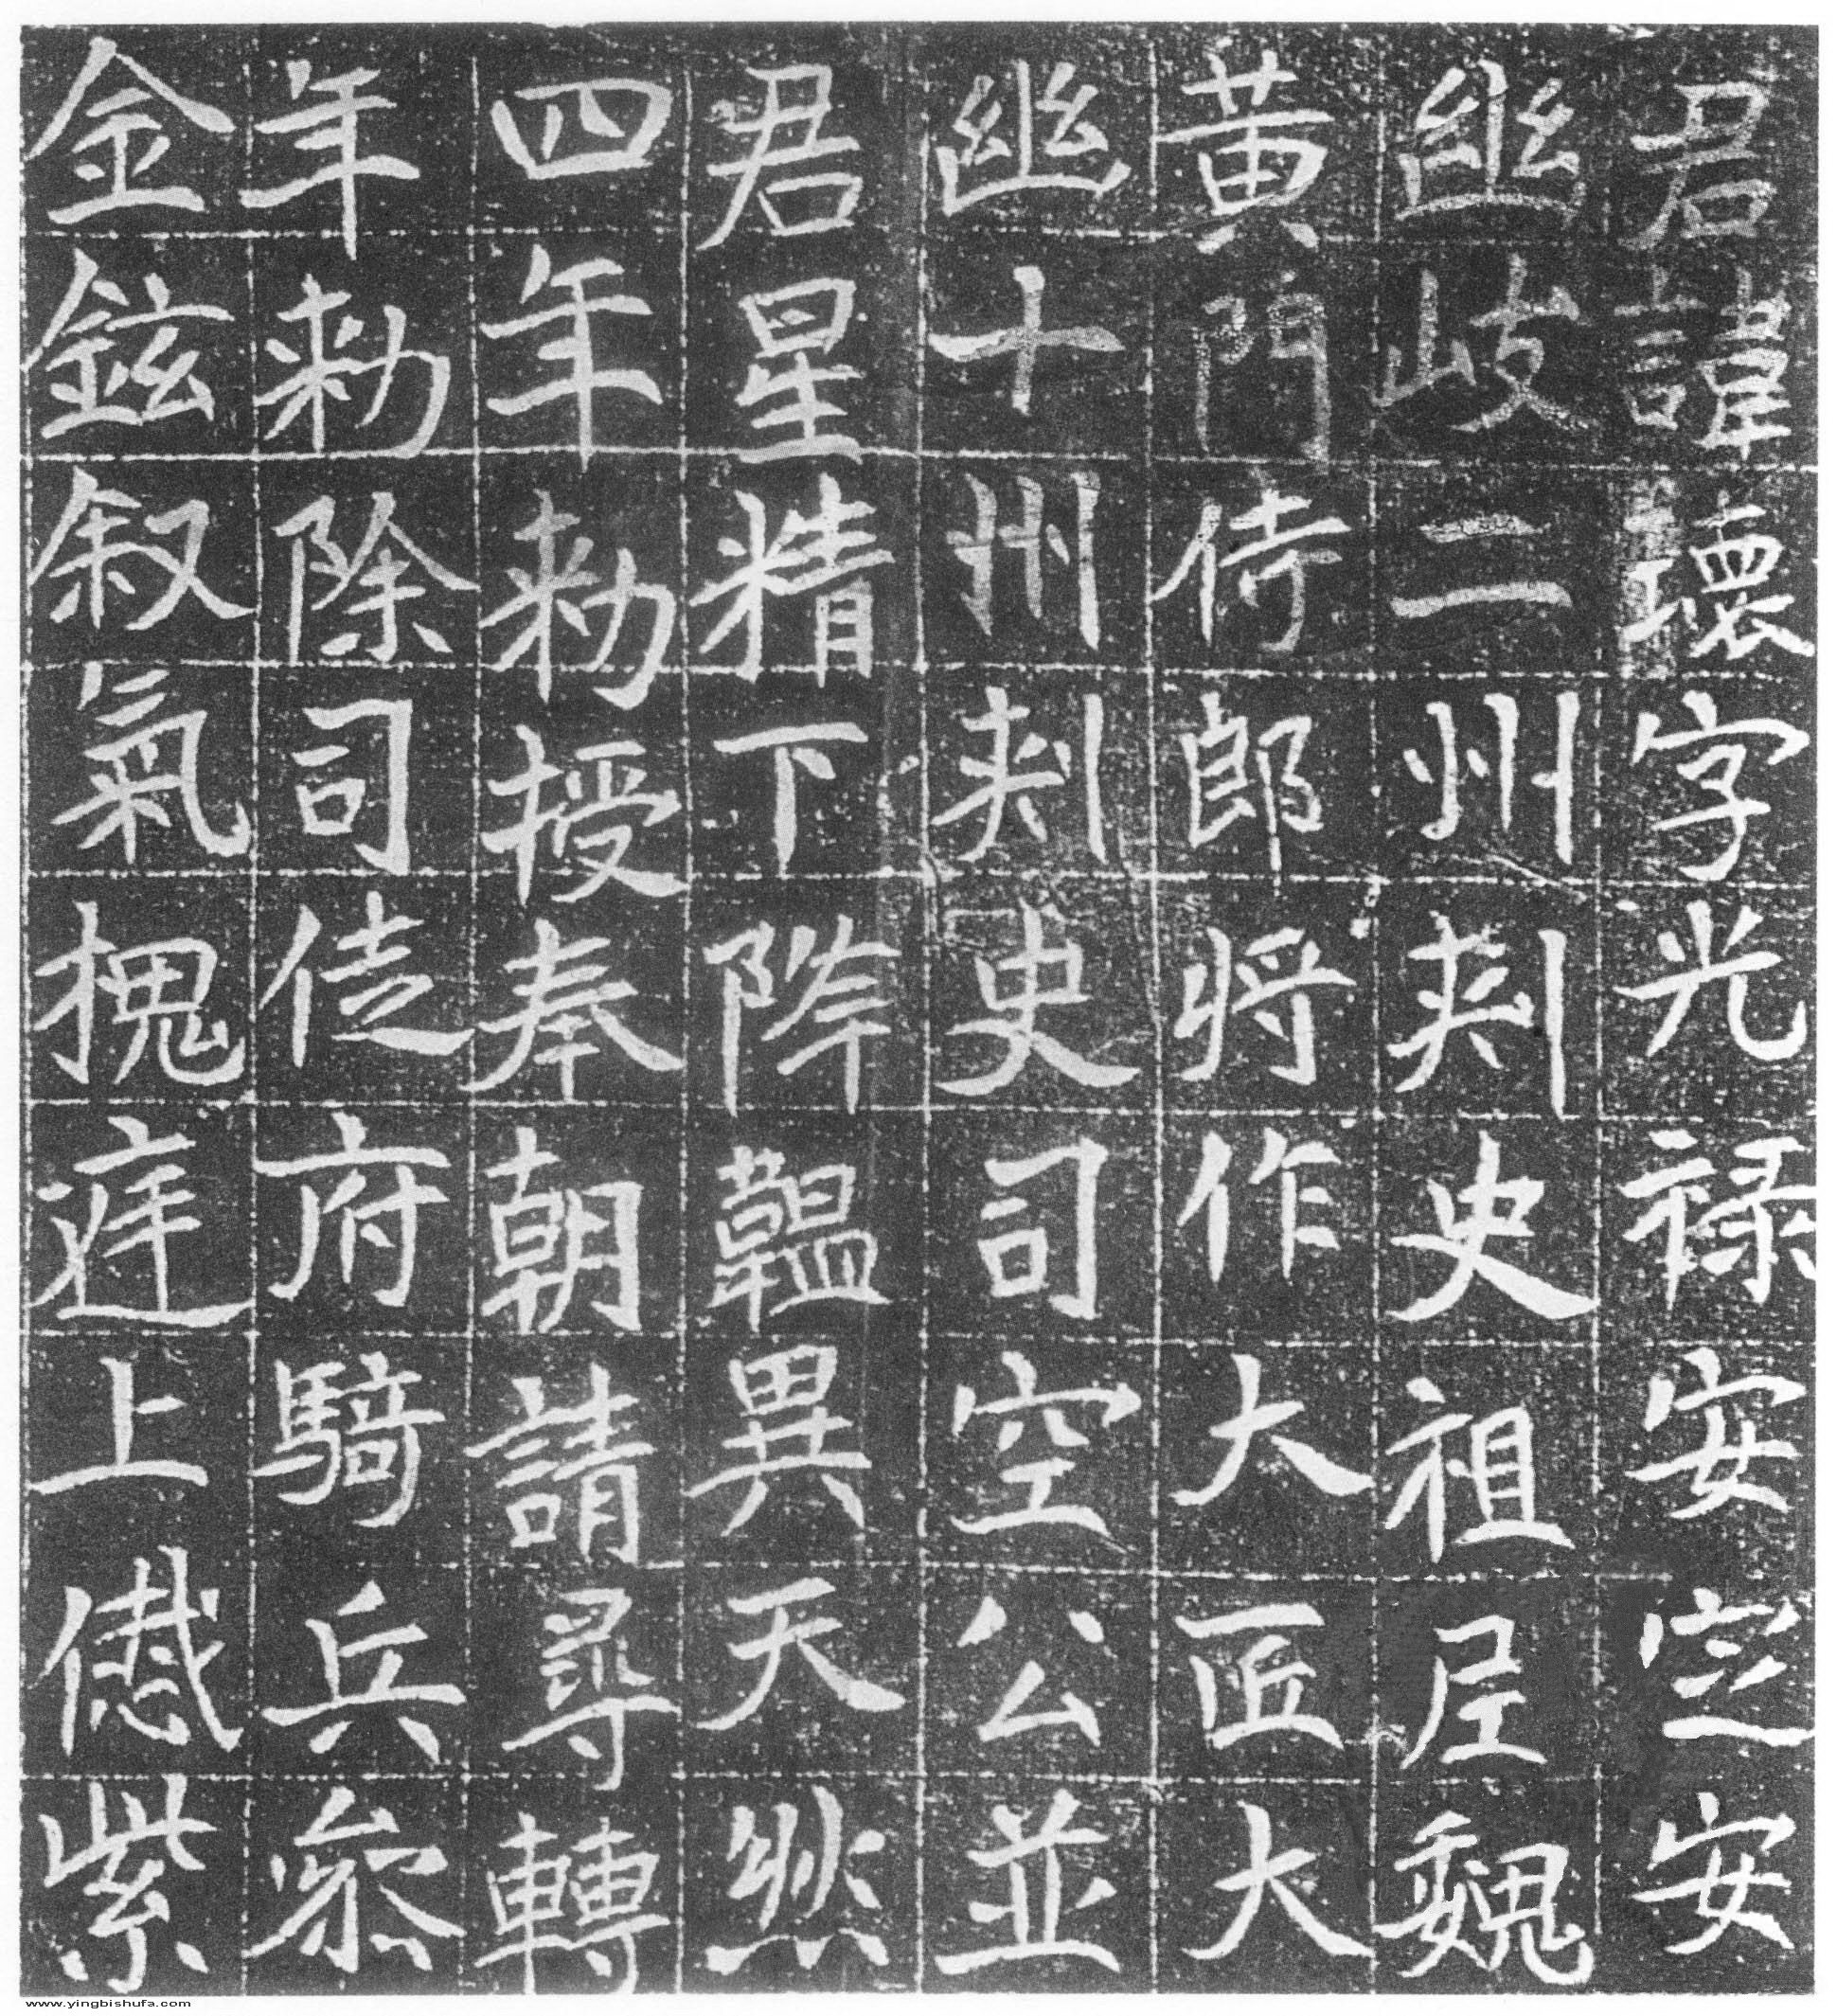 君諱瓌字光祿安定安
幽岐二州刺史祖魏
黃門侍郎将作大匠大
幽十州刺史司空公並
君星精下降韞異天然
四年勑授奉朝請尋轉
年勑除司徒府騎兵叅
金鉉叙氣槐庭上紫
www.yingbishufa.com